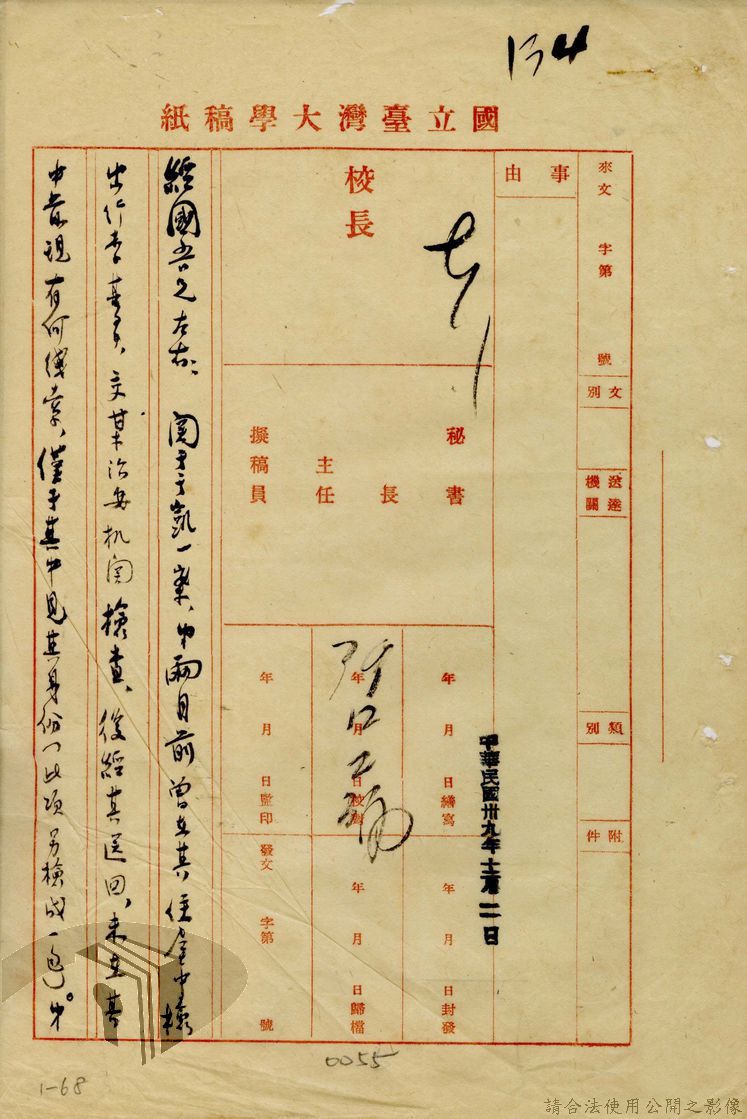 134
國立臺灣大學稿紙
來文 字第 號
文別
送達機關
類別
附件
事由
校長
秘書
長
主任
擬稿員
年 月 日繕寫
年 月 日校對
年 月 日監印
年 月 日封發
年 月 日歸檔
發文 字第 號
中華民國卅九年十二月二日
經國吾兄左右、關于于凱一案、弟兩月前曾在其住屋中檢
出行李甚多、交某治安机関檢查、後經其送回、未在其
中發現有何線索、僅于其中見其身份(此項另檢成一包)弟
0055
1-68
請合法使用公開之影像